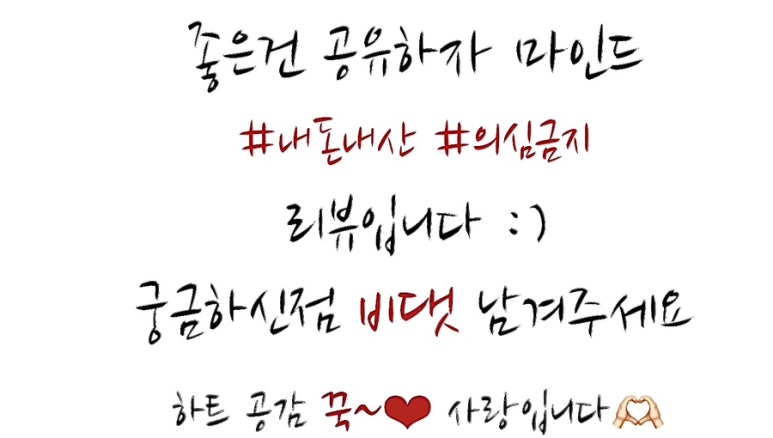 좋은건 공유하자 마인드
#내돈내산 #의심금지
리뷰입니다 :)
궁금하신점 비댓 남겨주세요
하트 공감 꾹~❤️ 사랑입니다🫶🏻